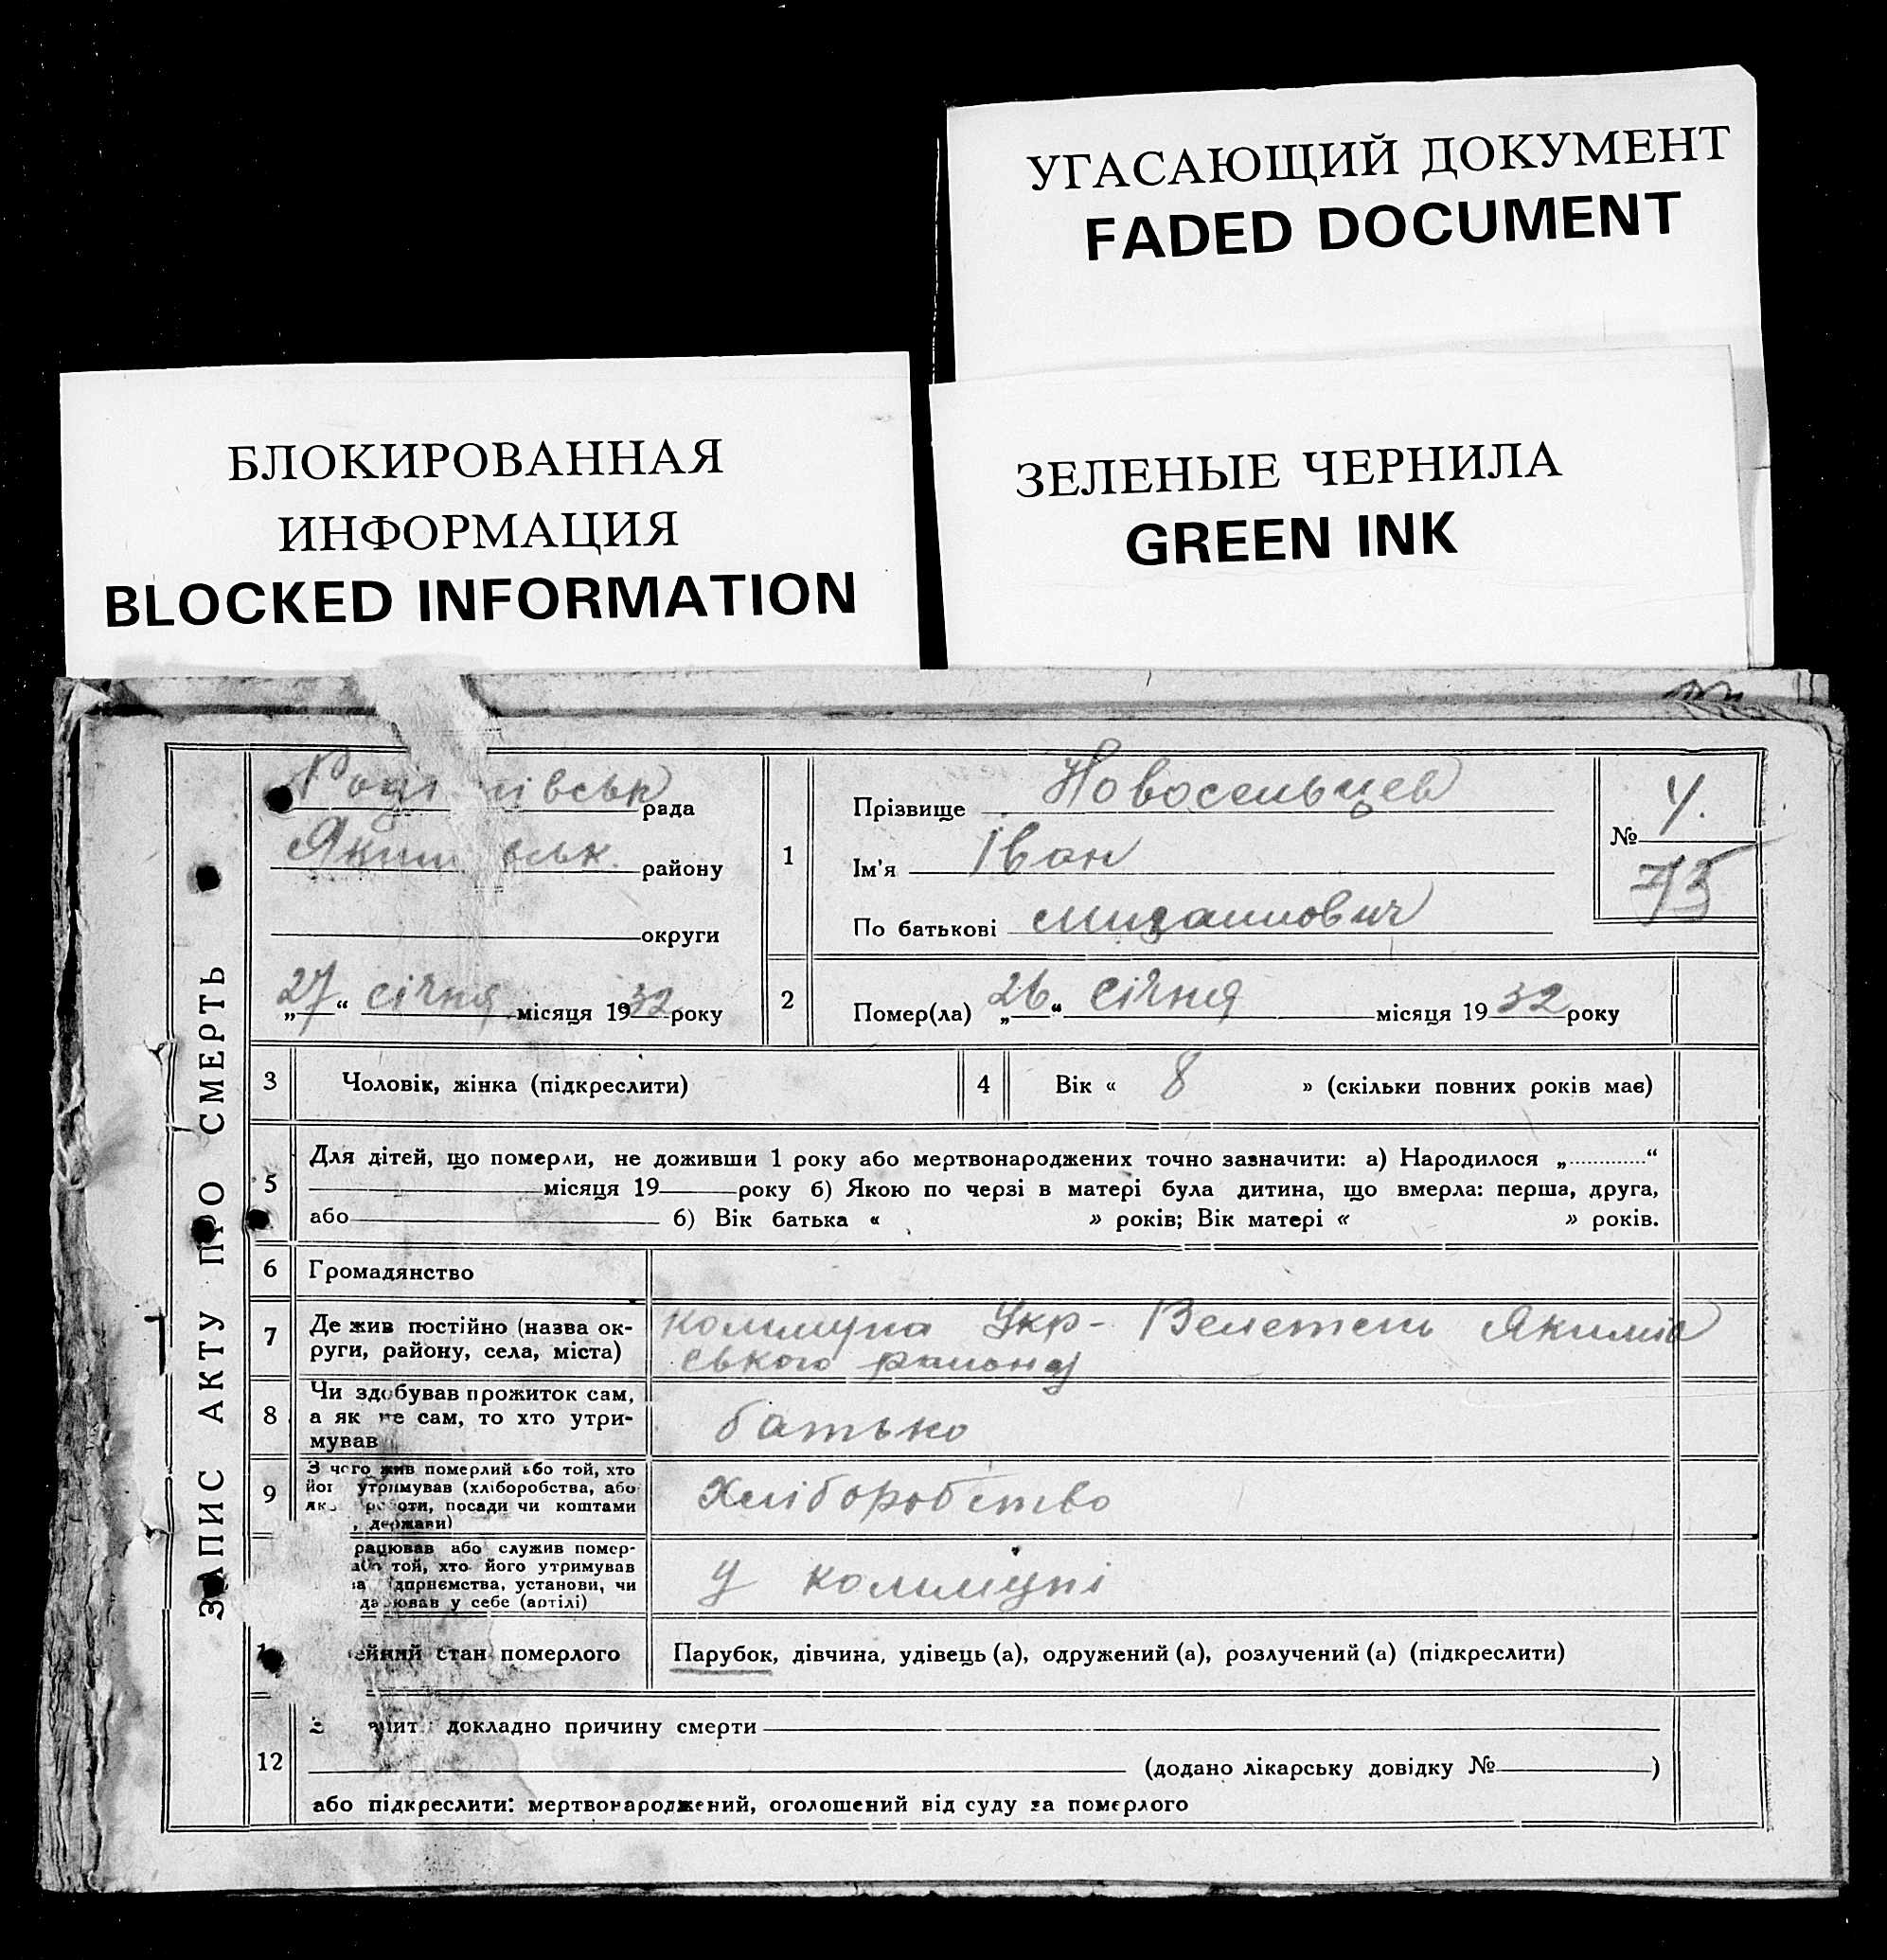 УГАСАЮЩИЙ ДОКУМЕНТ
FADED DOCUMENT
БЛОКИРОВАННАЯ
ИНФОРМАЦИЯ
BLOCKED INFORMATION
ЗЕЛЕНЫЕ ЧЕРНИЛА
GREEN INK
ЗАПИС АКТУ ПРО СМЕРТЬ
рада
району
округи
„27“ січня місяця 1932 року
1
Прізвище Новосельцев
Ім'я Іван
По батькові
№ 4.
73
2
Помер(ла) „26“ січня місяця 1932 року
3
Чоловік, жінка (підкреслити)
4
Вік « 8 » (скільки повних років має)
5
Для дітей, що померли, не доживши 1 року або мертвонароджених точно зазначити: а) Народилося „ “
місяця 19 року б) Якою по черзі в матері була дитина, що вмерла: перша, друга,
або б) Вік батька « » років; Вік матері « » років.
6
Громадянство
7
Де жив постійно (назва ок-
руги, району, села, міста)
коммуна Укр- Велетень Якимів
ського району
8
Чи здобував прожиток сам,
а як не сам, то хто утри-
мував
батько
9
З чого жив померлий або той, хто
утримував (хліборобства, або
роботи, посади чи коштами
держави)
Хліборобство
рацював або служив помер-
той, хто його утримував
дприємства, установи, чи
ював у себе (артілі)
у коммуні
ейний стан померлого
Парубок, дівчина, удівець (а), одружений (а), розлучений (а) (підкреслити)
12
докладно причину смерти
(додано лікарську довідку № )
або підкреслити: мертвонароджений, оголошений від суду за померлого